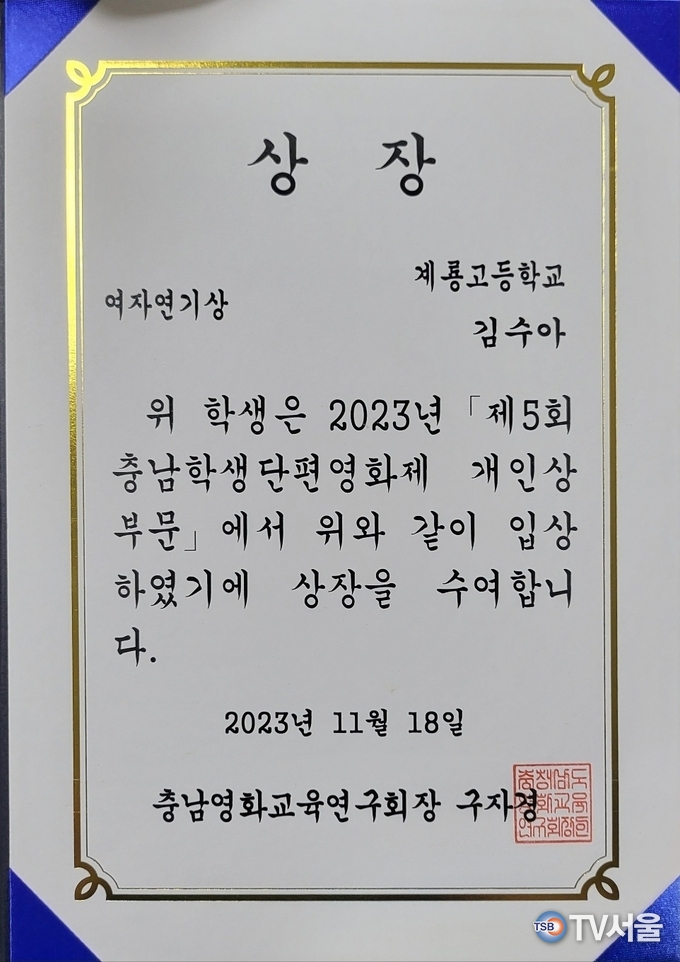 상 장
계룡고등학교
여자연기상
김수아
위 학생은 2023년 「제5회
충남학생단편영화제 개인상
부문」에서 위와 같이 입상
하였기에 상장을 수여합니
다.
2023년 11월 18일
충남영화교육연구회장 구자경
충청남도
영화교육
연구회장인
TSB TV서울